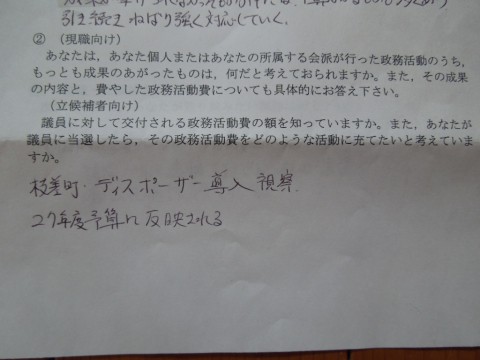 引き続き ねばり強く対応していく。
② (現職向け)
あなたは,あなた個人またはあなたの所属する会派が行った政務活動のうち,
もっとも成果のあがったものは,何だと考えておられますか。また,その成果
の内容と,費やした政務活動費についても具体的にお答え下さい。
(立候補者向け)
議員に対して交付される政務活動費の額を知っていますか。また,あなたが
議員に当選したら,その政務活動費をどのような活動に充てたいと考えていま
すか。
枝差町・ディスポーザー導入視察.
27年度予算に反映される